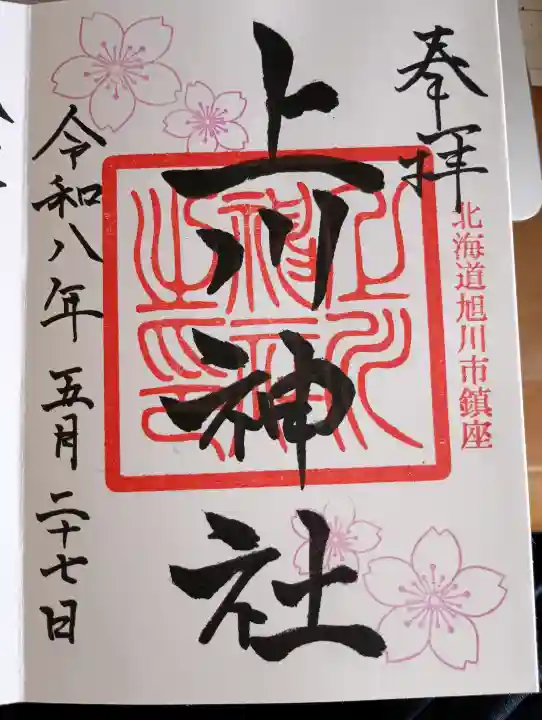 奉拝
北海道旭川市鎮座
上川神社
令和八年 五月 二十七日